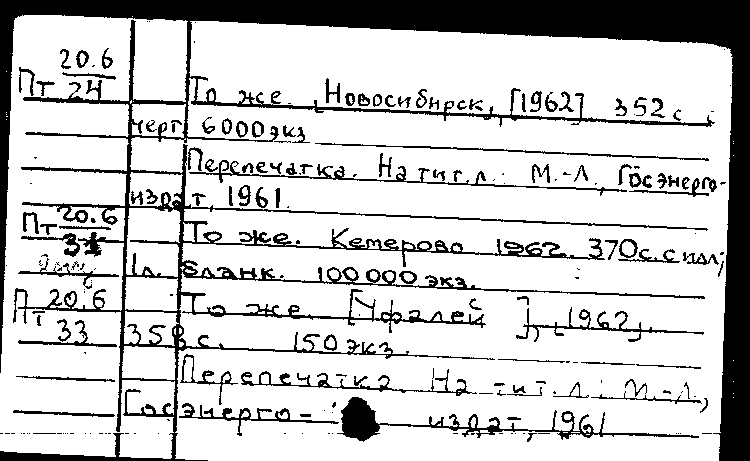 20.6
Пт 24 То же. [Новосибирск, [1962] 352 с.
черт. 6000 экз
Перепечатка. На тит. л.: М.-Л., Госэнерго-
издат, 1961.
Пт 20.6
31 То же. Кемерово 1962. 370 с. с илл;
1 л. бланк. 100 000 экз.
Пт 20.6 То же. [Уфалей], [1962].
33 358 с. 150 экз.
Перепечатка. На тит. л.: М.-Л.,
Госэнерго- издат, 1961